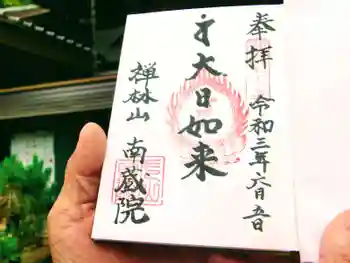 奉拝 令和三年六月
大日如来
禅林山 南蔵院